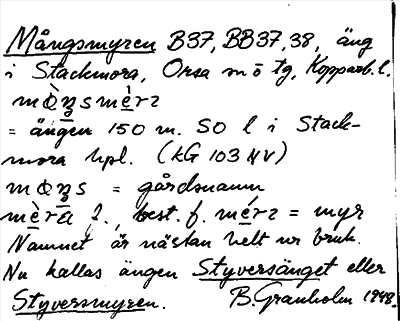 Mångsmyren B37, BB37,38, äng
i Stackmora, Orsa sn o tg, Kopparb. l.
= ängen 150 m. SO l i Stack-
mora hpl. (kG 103 NV)
= gårdsnamn
best. f. = myr
Namnet är nästan helt ur bruk.
Nu kallas ängen Styversänget eller
Styversmyren. B. Granholm 1948.